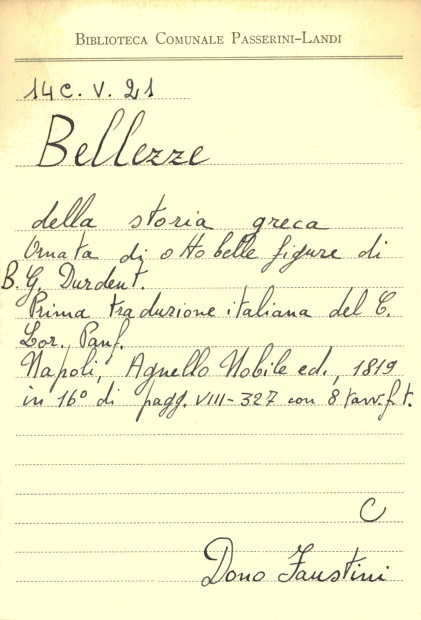 BIBLIOTECA COMUNALE PASSERINI-LANDI
14C. V. 21
Bellezze
della storia greca
Ornata di otto belle figure di
B. G. Durdent.
Prima traduzione italiana del C.
Lor. Panf.
Napoli, Agnello Nobile ed., 1819
in 16° di pagg. VIII-327 con 8 tavv. f. t.
C
Dono Faustini